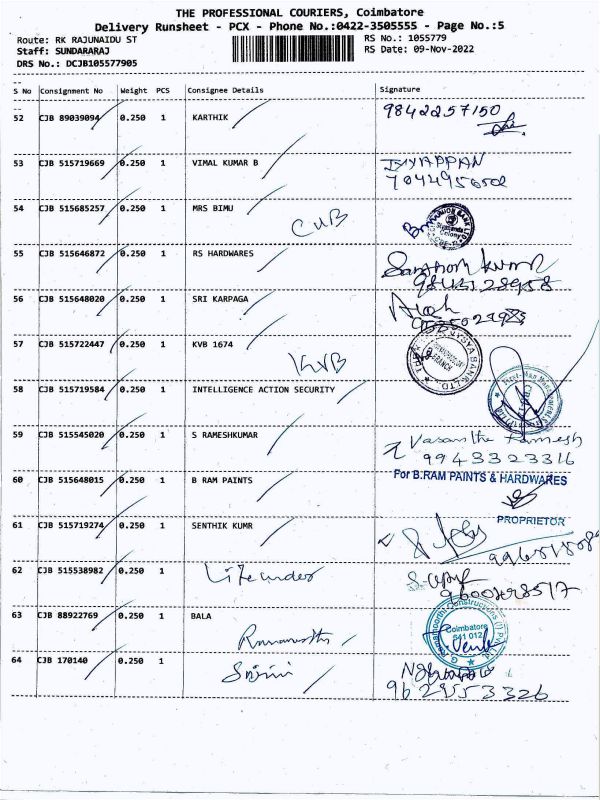 THE PROFESSIONAL COURIERS, Coimbatore
Delivery Runsheet - PCX - Phone No.:0422-3505555 - Page No.:5
Route: RK RAJUNAIDU ST RS No.: 1055779
Staff: SUNDARARAJ RS Date: 09-Nov-2022
DRS No.: DCJB105577905
S No Consignment No Weight PCS Consignee Details Signature
52 CJB 89039094 0.250 1 KARTHIK 9842257150
53 CJB 515719669 0.250 1 VIMAL KUMAR B IYYAPPAN
54 CJB 515685257 0.250 1 MRS BIMU
CUB
55 CJB 515646872 0.250 1 RS HARDWARES
56 CJB 515648020 0.250 1 SRI KARPAGA
57 CJB 515722447 0.250 1 KVB 1674
KVB
58 CJB 515719584 0.250 1 INTELLIGENCE ACTION SECURITY
59 CJB 515545020 0.250 1 S RAMESHKUMAR Vasantha Ramesh
9943323316
60 CJB 515648015 0.250 1 B RAM PAINTS For B.RAM PAINTS & HARDWARES
PROPRIETOR
61 CJB 515719274 0.250 1 SENTHIK KUMR
62 CJB 515538982 0.250 1
63 CJB 88922769 0.250 1 BALA Coimbatore
641 012
64 CJB 170140 0.250 1
9629553326